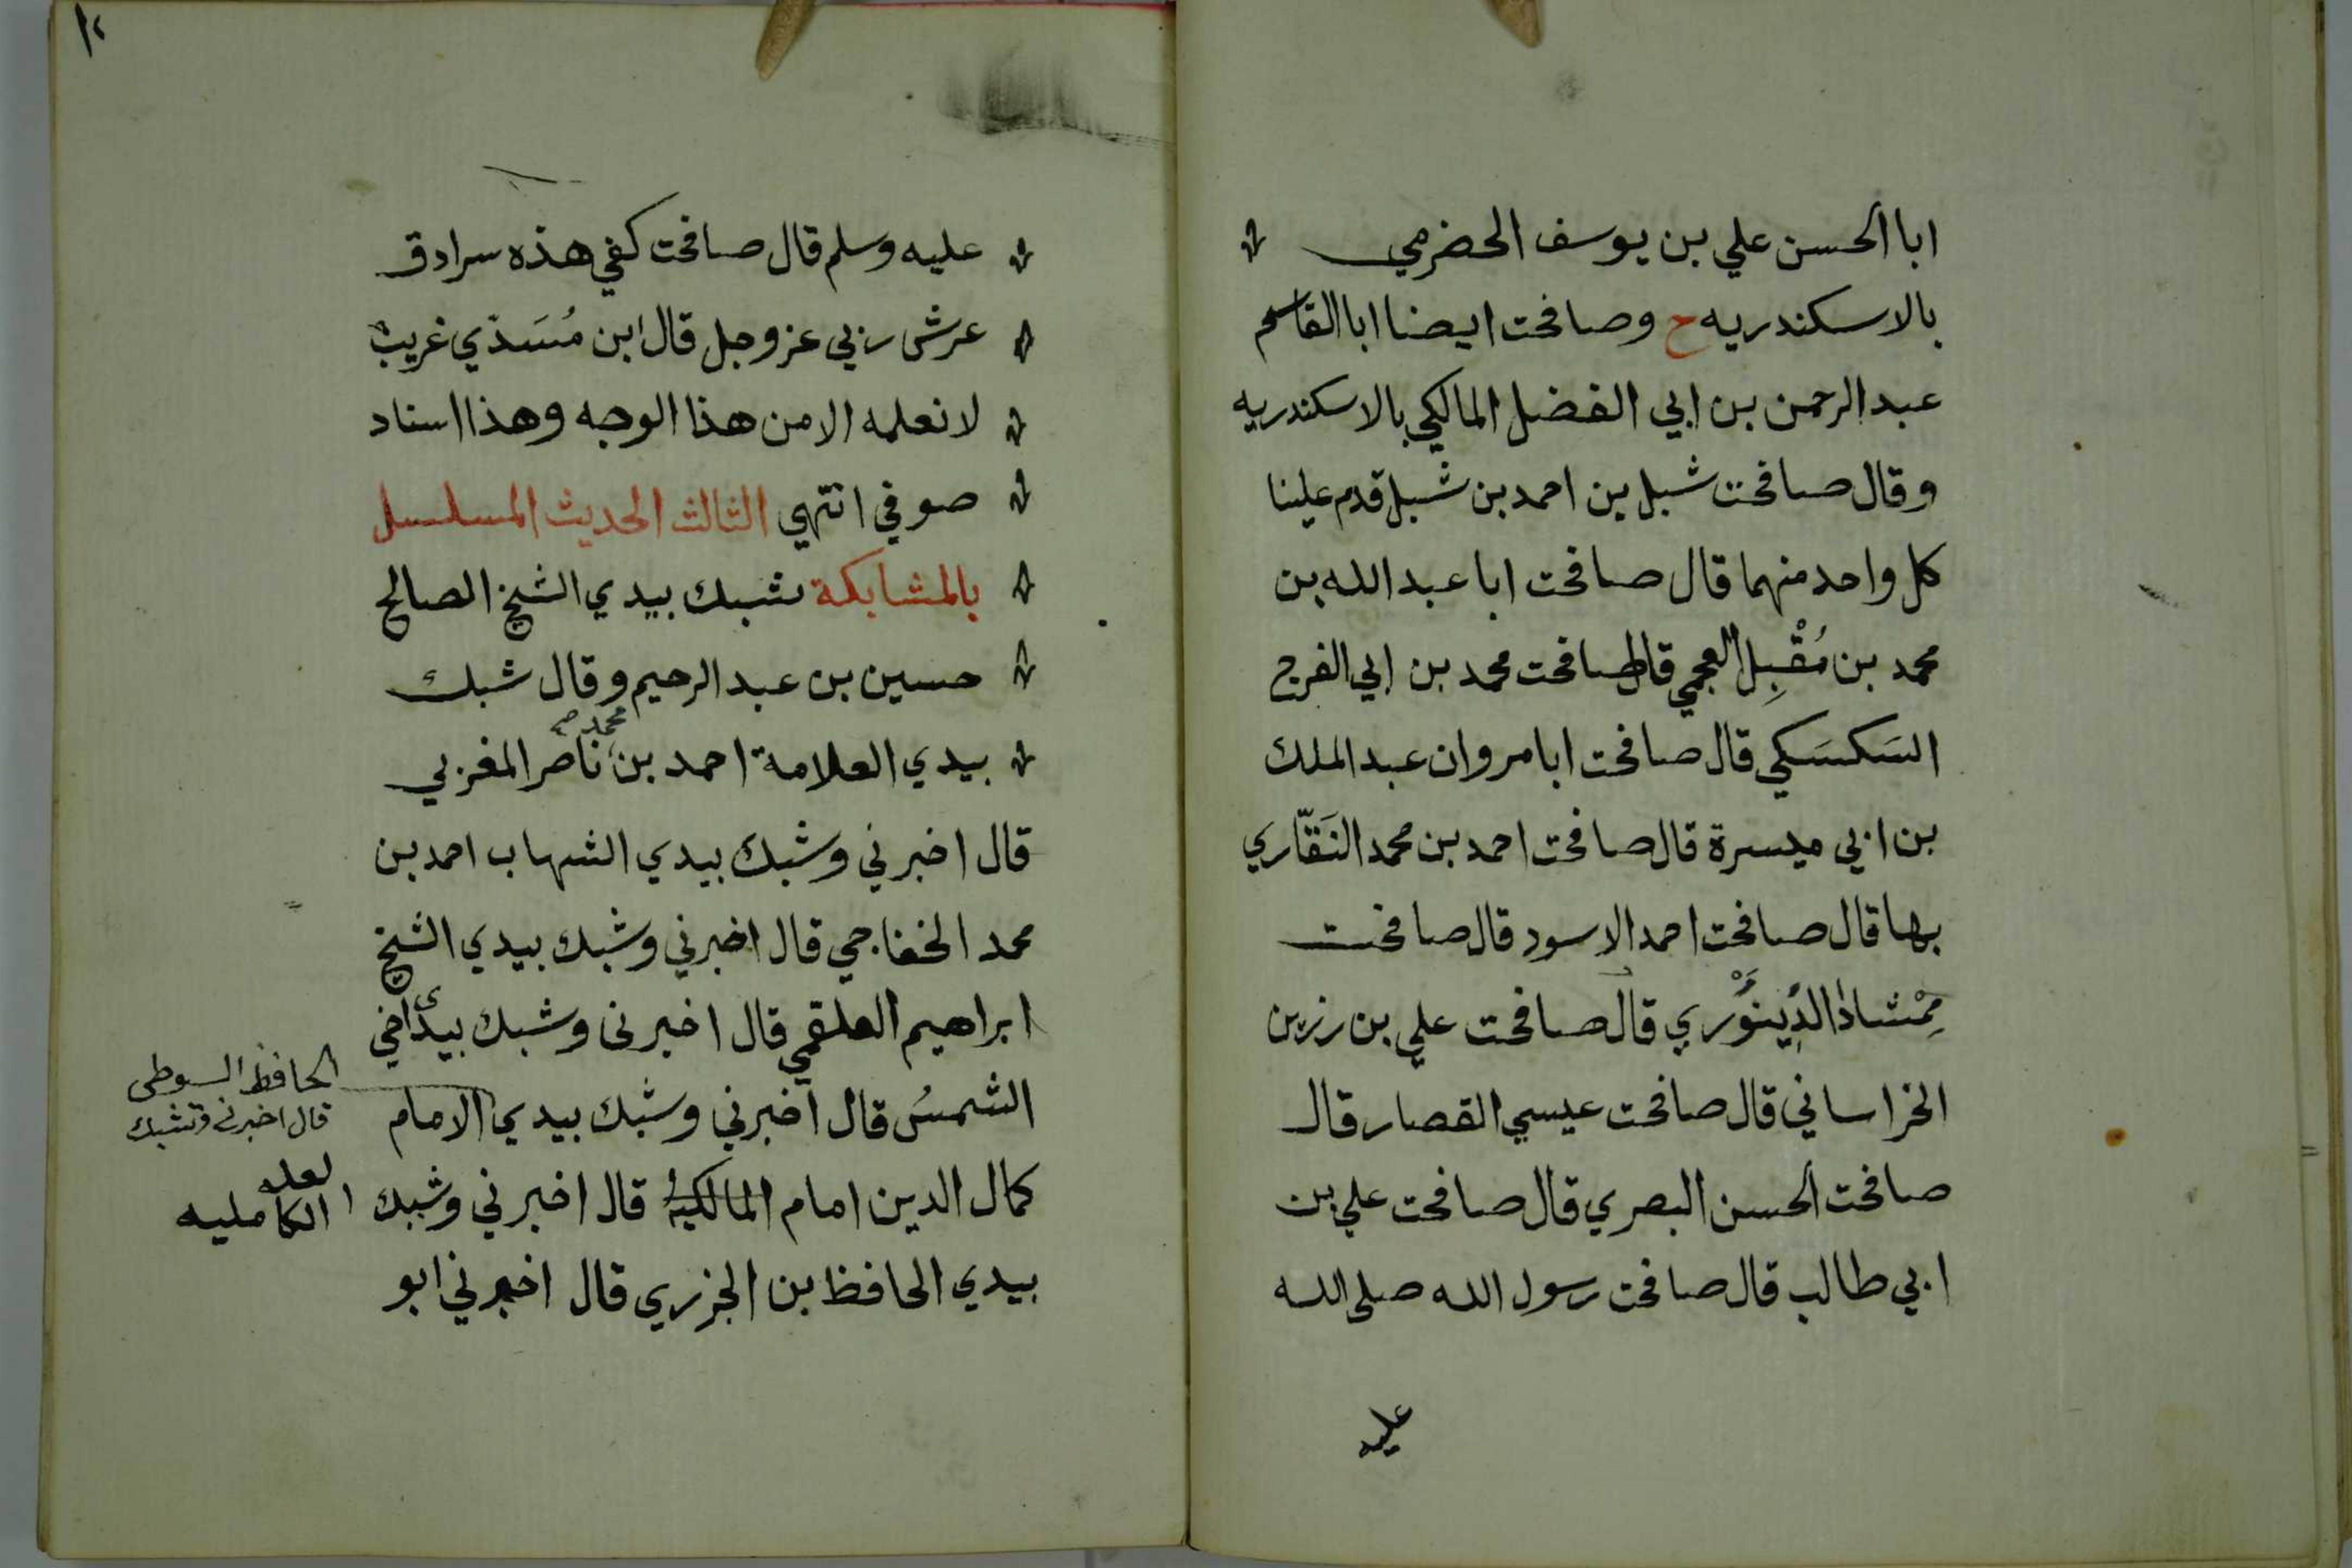 ابا الحسن علي بن يوسف الحضرمي
بالاسكندريه ح وصافحت ايضا ابا القاسم
عبد الرحمن بن ابي الفضل المالكي بالاسكندريه
وقال صافحت شبل بن احمد بن شبل قدم علينا
كل واحد منهما قال صافحت ابا عبد الله بن
محمد بن مُقْبِل العجمي قال صافحت محمد بن ابي الفرج
السَكسَكي قال صافحت ابا مروان عبد الملك
بن ابي ميسرة قال صافحت احمد بن محمد النَقّاري
بها قال صافحت احمد الاسود قال صافحت
مِمْشاذ الدِينَوْري قال صافحت علي بن رزين
الخراساني قال صافحت عيسي القصار قال
صافحت الحسن البصري قال صافحت علي بن
ابي طالب قال صافحت رسول الله صلى الله
عليه
١٢
عليه وسلم قال صافحت كفي هذه سرادق
عرش ربي عز وجل قال ابن مُسَدّي غريبٌ
لا نعلمه الا من هذا الوجه وهذا اسناد
صوفي انتهي الثالث الحديث المسلسل
بالمشابكة شبك بيدي الشيخ الصالح
حسين بن عبد الرحيم وقال شبك
بيدي العلامة احمد بن محمد صح ناصر المغربي
قال اخبرني وشبك بيدي الشهاب احمد بن
محمد الخفاجي قال اخبرني وشبك بيدي الشيخ
ابراهيم العلقمي قال اخبرني وشبك بيدي اخي
الشمسُ قال اخبرني وشبك بيدي الامام
الحافظ السيوطي
قال اخبرني وشبك
كمال الدين امام المالكية قال اخبرني وشبك
لعله
الكامليه
بيدي الحافظ بن الجزري قال اخبرني ابو